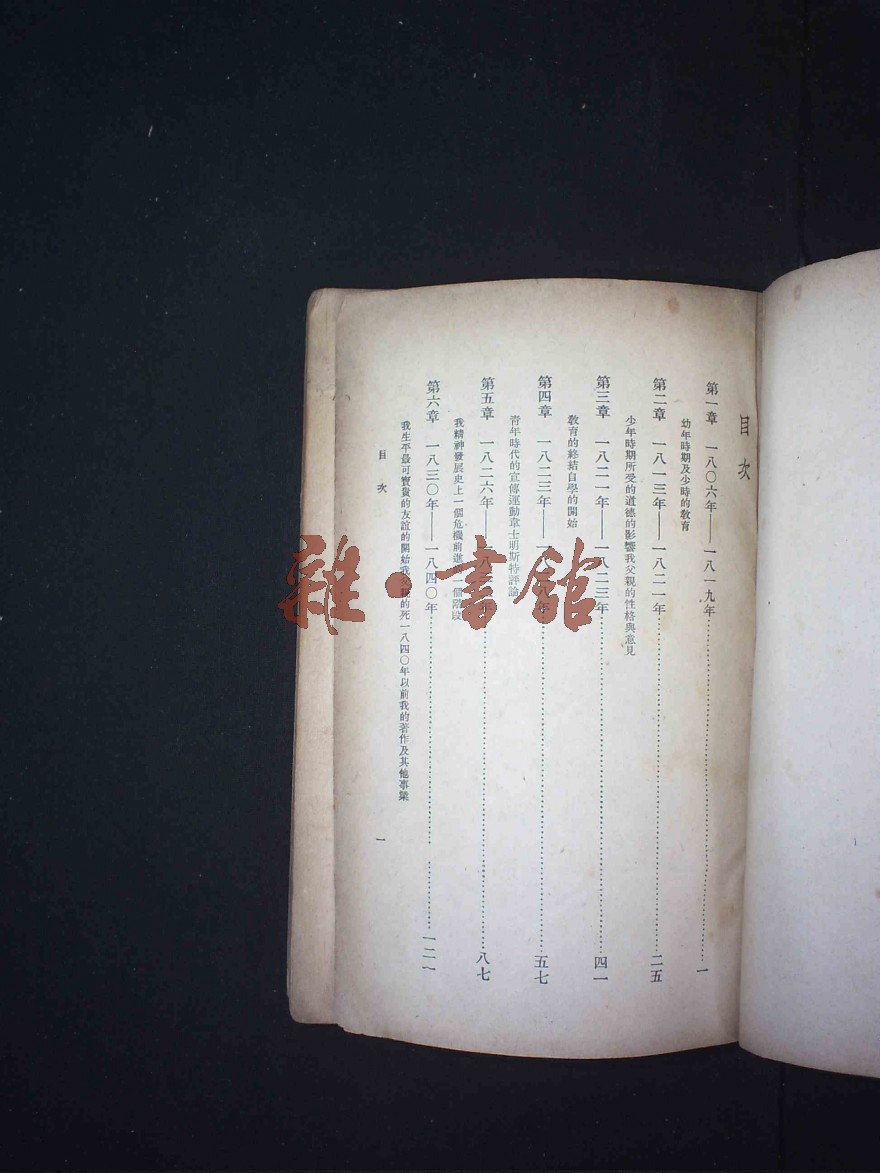 目次
第一章 一八〇六年——一八一九年……一
幼年時期及少時的教育
第二章 一八一三年——一八二一年……二五
少年時期所受的道德的影響我父親的性格與意見
第三章 一八二一年——一八二三年……四一
教育的終結自學的開始
第四章 一八二三年——一八二八年……五七
青年時代的宣傳運動韋士明斯特評論
第五章 一八二六年——一八三二年……八七
我精神發展史上一個危機前進的一個階段
第六章 一八三〇年——一八四〇年……一二一
我生平最可寶貴的友誼的開始我父親的死一八四〇年以前我的著作及其他事業
目次
一
雜·書館